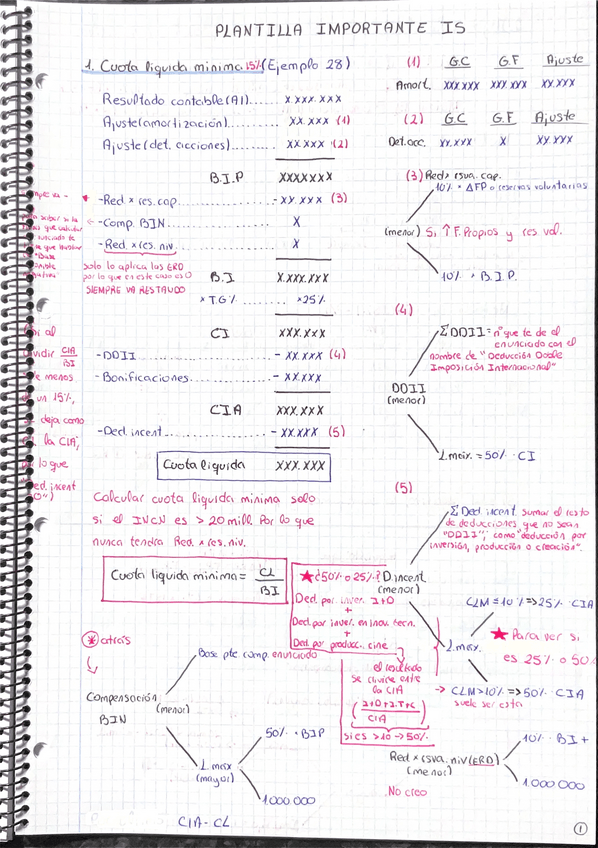 PLANTILLA IMPORTANTE IS
1. Cuota líquida mínima 15% (Ejemplo 28)
Resultado contable (AI)....... X.XXX.XXX
Ajuste (amortización)............ XX.XXX (1)
Ajuste (det. acciones)........... XX.XXX (2)
B.I.P XXXXXXX
-Red x res. cap.................... - XX.XXX (3)
-Comp. BIN........................ X
-Red. x res. niv.................. X
solo lo aplica las ERD
por lo que en este caso es 0
SIEMPRE VA RESTANDO
B.I X.XXX.XXX
x T.G % x25%
CI XXX.XXX
-DDII................................ - XX.XXX (4)
-Bonificaciones.................. - XX.XXX
CIA XXX.XXX
-Ded. incent..................... - XX.XXX (5)
Cuota líquida XXX.XXX
dividir CIA
BI
menos
un 15%,
deja como
la CIA,
lo que
incent
0")
Calcular cuota líquida mínima solo
si el INCN es > 20 mill. Por lo que
nunca tendra Red. x res. niv.
Cuota líquida mínima = CL
BI
* atrás
Compensación
BIN
(menor)
Base pte. comp. enunciado
L max
(mayor)
50% · BIP
1.000.000
CIA - CL
(1) G.C G.F Ajuste
Amort. XXX.XXX XXX.XXX XX.XXX
(2) G.C G.F Ajuste
Det. acc. XX.XXX X XX.XXX
(3) Red x rsva. cap.
10% · ΔFP o reservas voluntarias
(menor) Si ↑ F. Propios y res. vol.
10% · B.I.P.
(4)
Σ DDII = nº que te de el
enunciado con el
nombre de "Deducción Doble
Imposición Internacional"
DDII
(menor)
L. max. = 50% · CI
(5)
Σ Ded. incent. sumar el resto
de deducciones que no sean
"DDII", como "deducción por
inversión, producción o creación".
D. incent
(menor)
★ ¿50% o 25%?
Ded. por inver. I+D
+
Ded. por inver. en inou. tecn.
+
Ded. por producc. cine
el resultado
se divide entre
la CIA
I+D+I.T+C
CIA
si es > 10 → 50%
L. max.
CLM ≤ 10% => 25% · CIA
★ Para ver si
es 25% o 50%
→ CLM > 10% => 50% · CIA
suele ser esta
Red x rsva. niv (ERD)
(menor)
10% · BI +
1.000.000
No creo
1